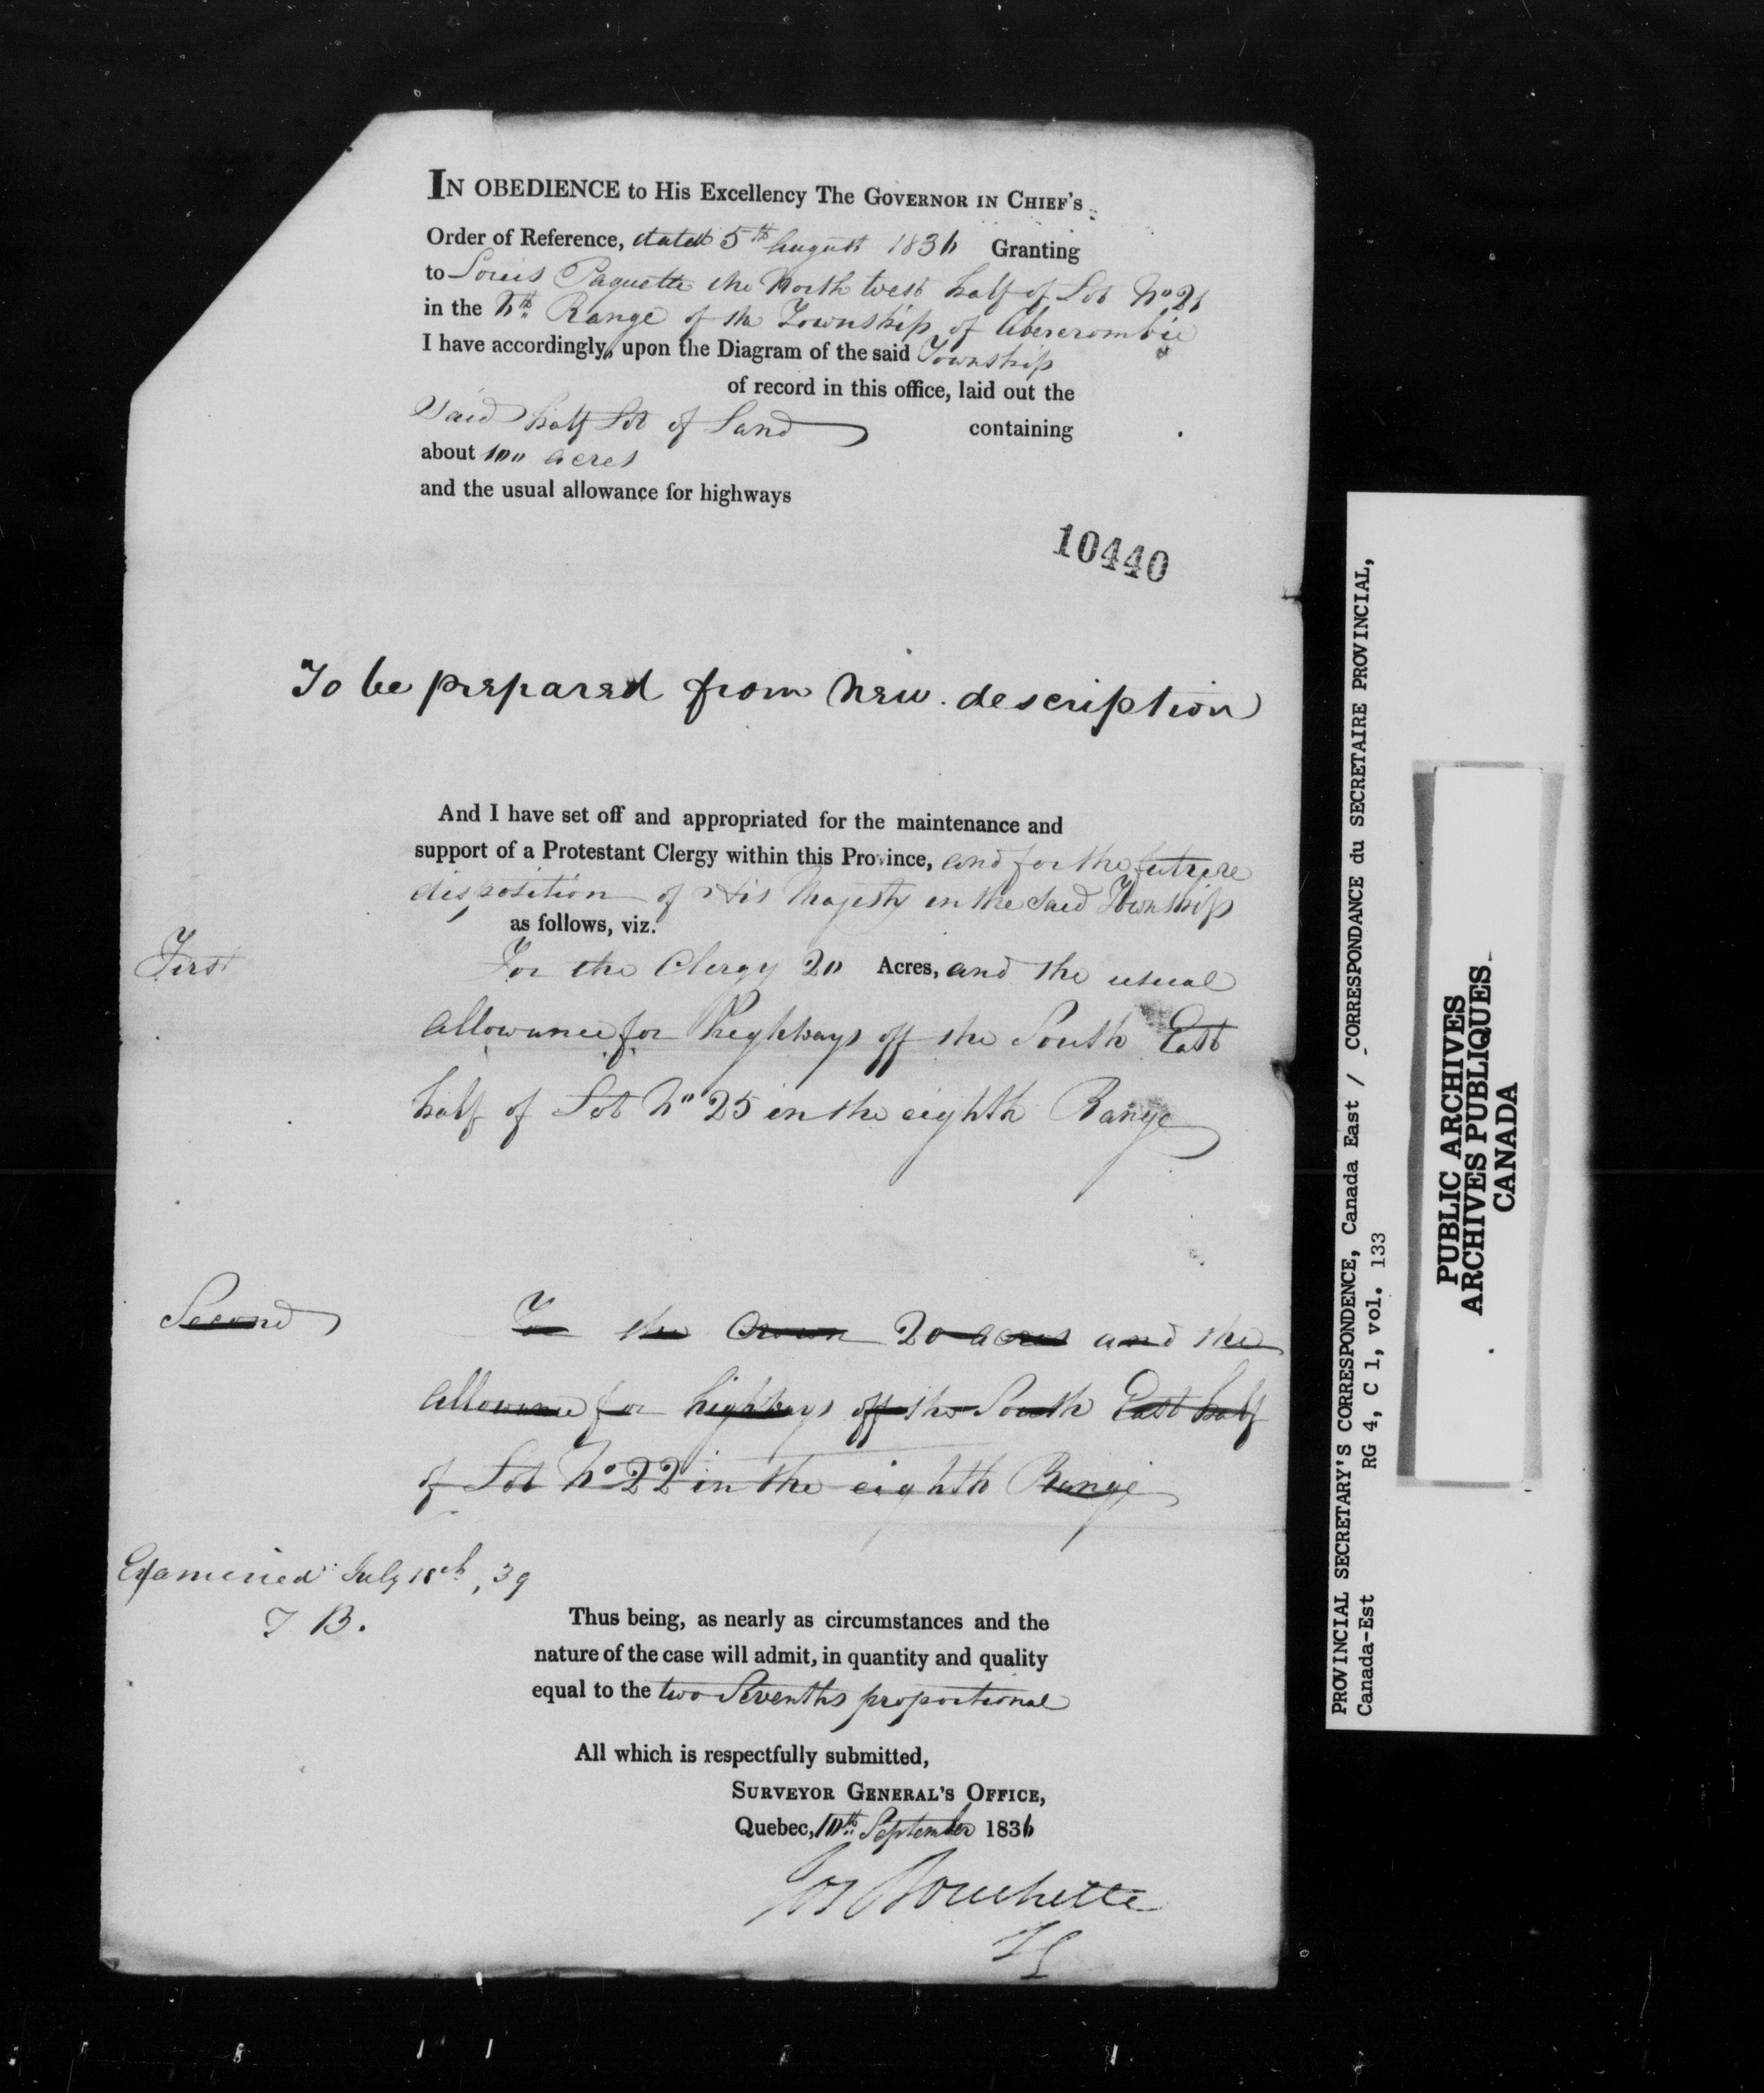 IN OBEDIENCE to His Excellency The GOVERNOR IN CHIEF'S
Order of Reference, dated 5th August 1836 Granting
to Louis Paquette the North West half of Lot No 21
in the Range of the Township of Abercrombie
I have accordingly, upon the Diagram of the said Township
of record in this office, laid out the
Said half Lot of Land containing
about 100 acres
and the usual allowance for highways
10440
To be prepared from New description
And I have set off and appropriated for the maintenance and
support of a Protestant Clergy within this Province, and for the future
disposition of His Majesty in the said Township
as follows, viz.
First For the Clergy 20 Acres, and the usual
allowance for highways off the South East
half of Lot No 25 in the eighth Range
Second For the Crown 20 acres and the
allowance for highways off the South East half
of Lot No 22 in the eighth Range
Examined July 18th, 39
T B.
Thus being, as nearly as circumstances and the
nature of the case will admit, in quantity and quality
equal to the two Sevenths proportional
All which is respectfully submitted,
SURVEYOR GENERAL'S OFFICE,
Quebec, 10th September 1836
Jos Bouchette
PROVINCIAL SECRETARY'S CORRESPONDENCE, Canada East / CORRESPONDANCE du SECRETAIRE PROVINCIAL,
Canada-Est RG 4, C 1, vol. 133
PUBLIC ARCHIVES
ARCHIVES PUBLIQUES
CANADA